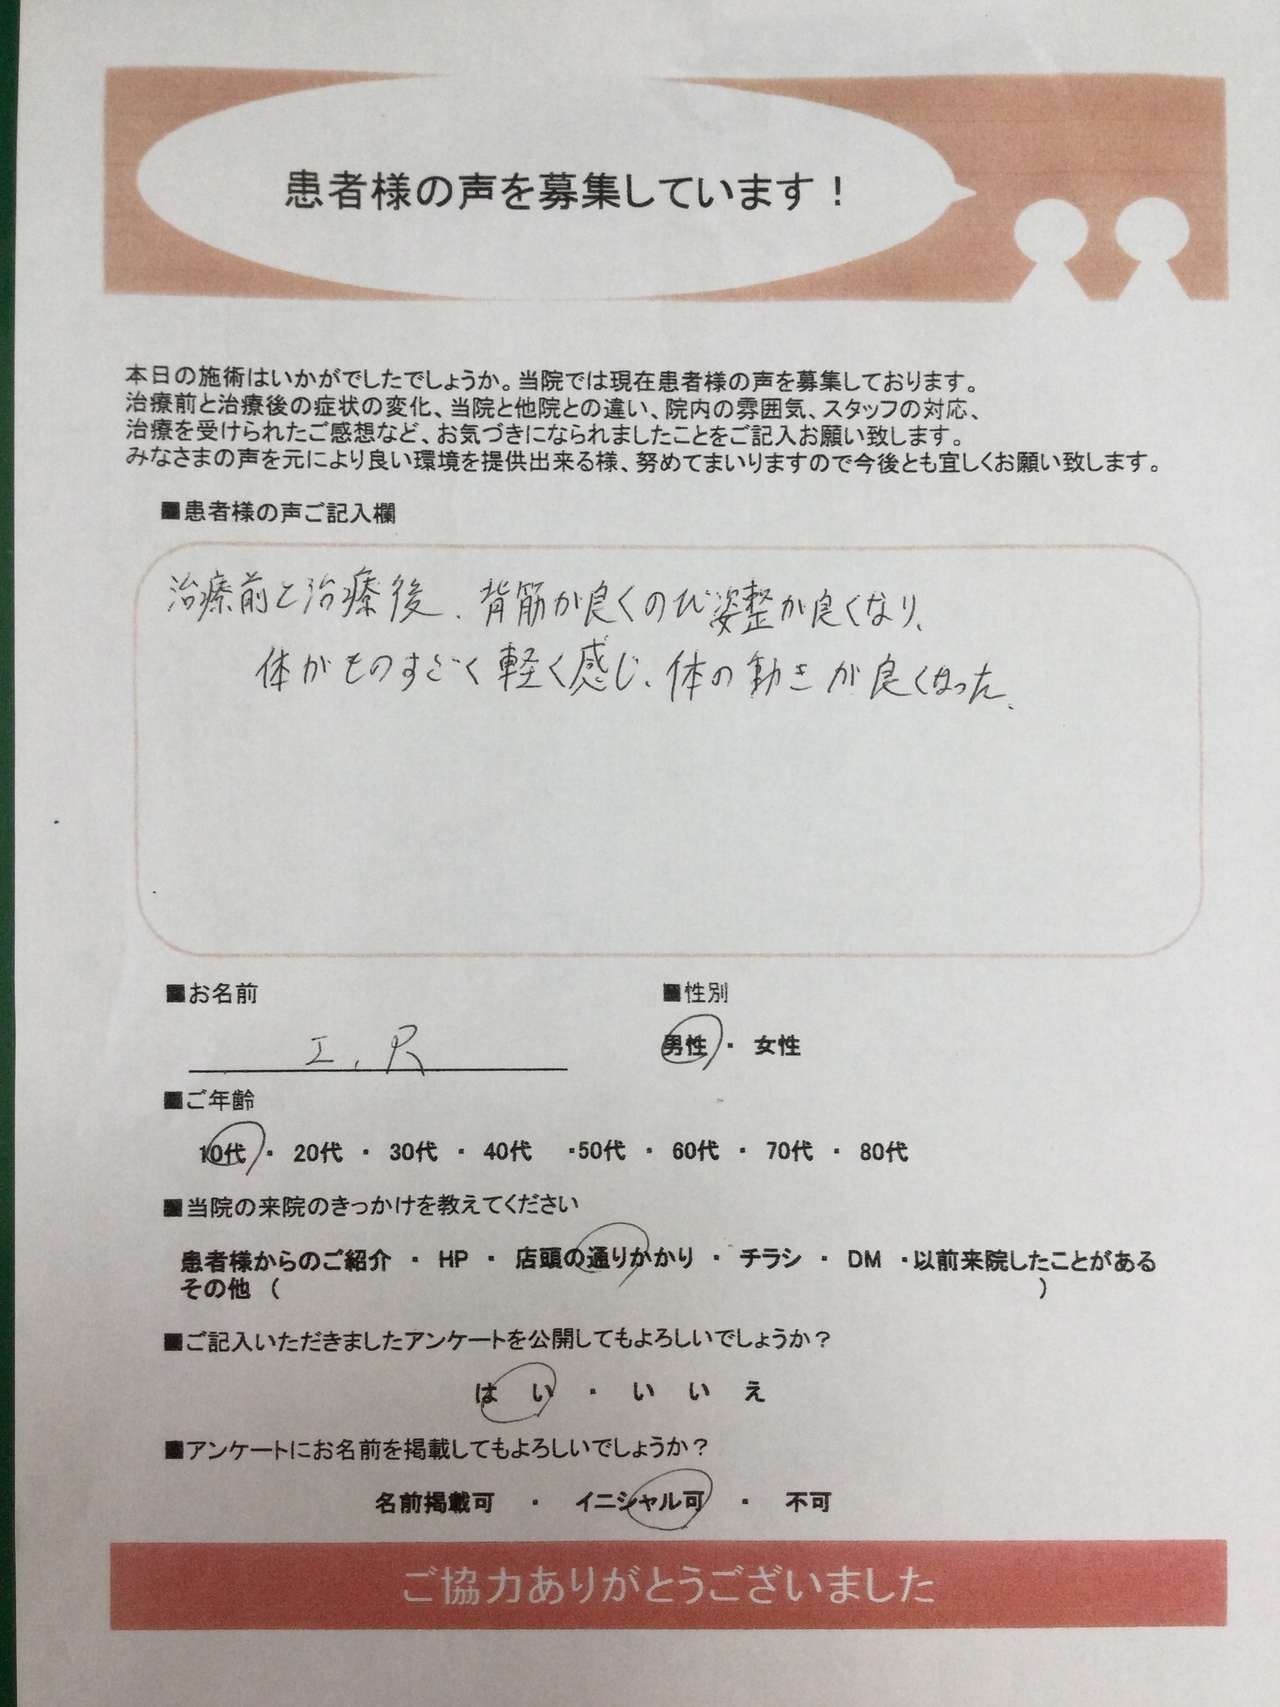 患者様の声を募集しています！
本日の施術はいかがでしたでしょうか。当院では現在患者様の声を募集しております。
治療前と治療後の症状の変化、当院と他院との違い、院内の雰囲気、スタッフの対応、
治療を受けられたご感想など、お気づきになられましたことをご記入お願い致します。
みなさまの声を元により良い環境を提供出来る様、努めてまいりますので今後とも宜しくお願い致します。
■患者様の声ご記入欄
治療前と治療後、背筋が良くのび姿整が良くなり、
体がものすごく軽く感じ、体の動きが良くなった。
■お名前 ■性別
I.R 男性 ・ 女性
■ご年齢
10代 ・ 20代 ・ 30代 ・ 40代 ・50代 ・ 60代 ・ 70代 ・ 80代
■当院の来院のきっかけを教えてください
患者様からのご紹介 ・ HP ・ 店頭の通りかかり ・ チラシ ・ DM ・以前来院したことがある
その他（ ）
■ご記入いただきましたアンケートを公開してもよろしいでしょうか？
はい ・ いいえ
■アンケートにお名前を掲載してもよろしいでしょうか？
名前掲載可 ・ イニシャル可 ・ 不可
ご協力ありがとうございました